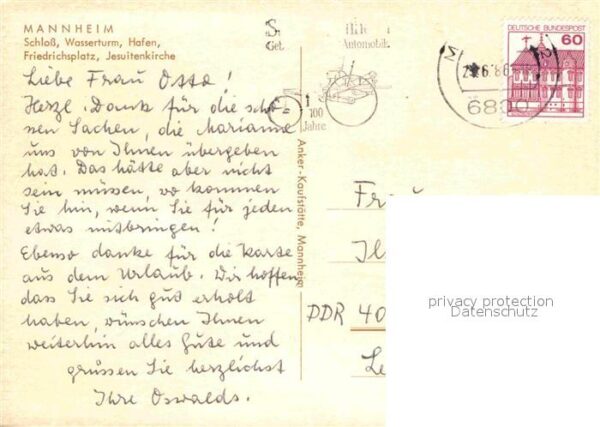 MANNHEIM
Schloß, Wasserturm, Hafen,
Friedrichsplatz, Jesuitenkirche
Liebe Frau Otto!
Herzl. Dank für die schö-
nen Sachen, die Marianne
uns von Ihnen übergeben
hat. Das hätte aber nicht
sein müssen, wo kommen
Sie hin, wenn Sie für jeden
etwas mitbringen!
Ebenso danke für die Karte
aus dem Urlaub. Wir hoffen,
dass Sie sich gut erholt
haben, wünschen Ihnen
weiterhin alles Gute und
grüssen Sie herzlichst
Ihre Oswalds.
Anker-Kaufstätte, Mannheim
Automobil
100
Jahre
6.86
680
DEUTSCHE BUNDESPOST
60
DDR 40
privacy protection
Datenschutz